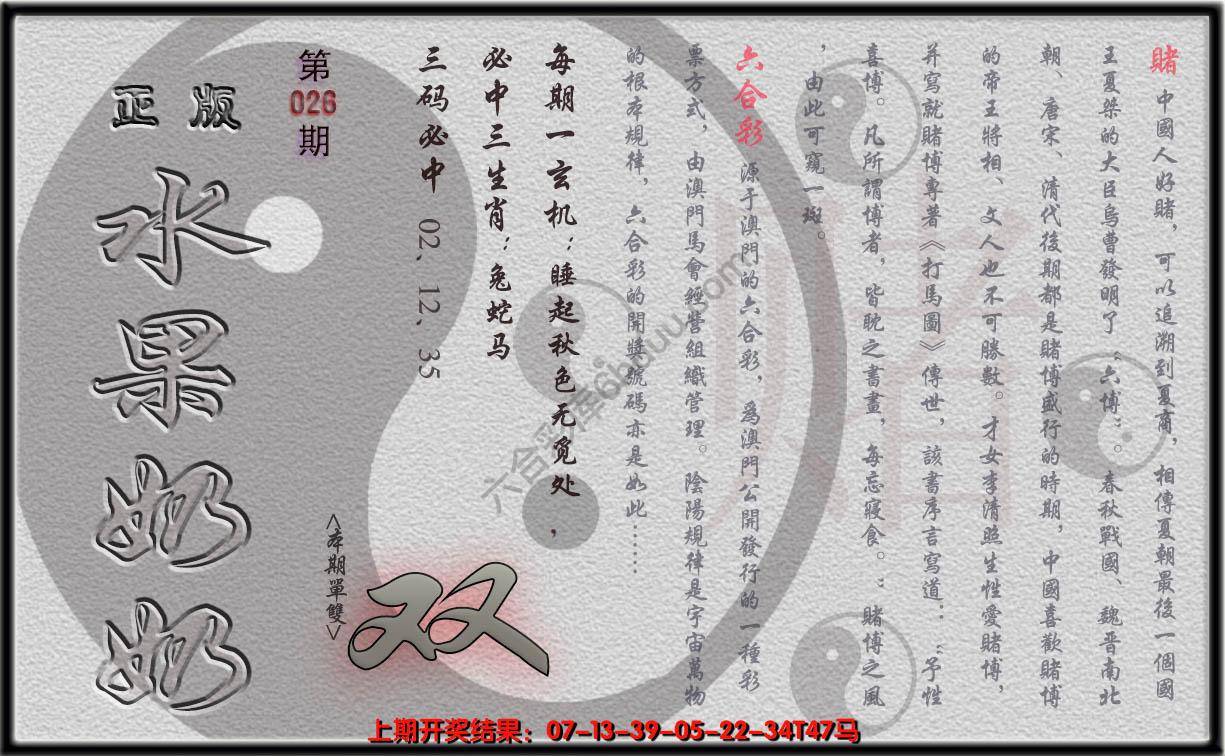 賭 中國人好賭，可以追溯到夏商，相傳夏朝最後一個國
王夏桀的大臣烏曹發明了“六博”。春秋戰國、魏晋南北
朝、唐宋、清代後期都是賭博盛行的時期，中國喜歡賭博
的帝王將相、文人也不可勝數。才女李清照生性愛賭博，
并寫就賭博專著《打馬圖》傳世，該書序言寫道：“予性
喜博。凡所謂博者，皆耽之書畫，每忘寢食。”賭博之風
，由此可窺一斑。
六合彩 源于澳門的六合彩，爲澳門公開發行的一種彩
票方式，由澳門馬會經營組織管理。陰陽規律是宇宙萬物
的根本規律，六合彩的開獎號碼亦是如此……
每期一玄机：睡起秋色无觅处，
必中三生肖：兔蛇马
三码必中 02、12、35
第
026
期
<本期單雙>
双
正版
水果奶奶
六合彩库6huuu.com
上期开奖结果：07-13-39-05-22-34T47马